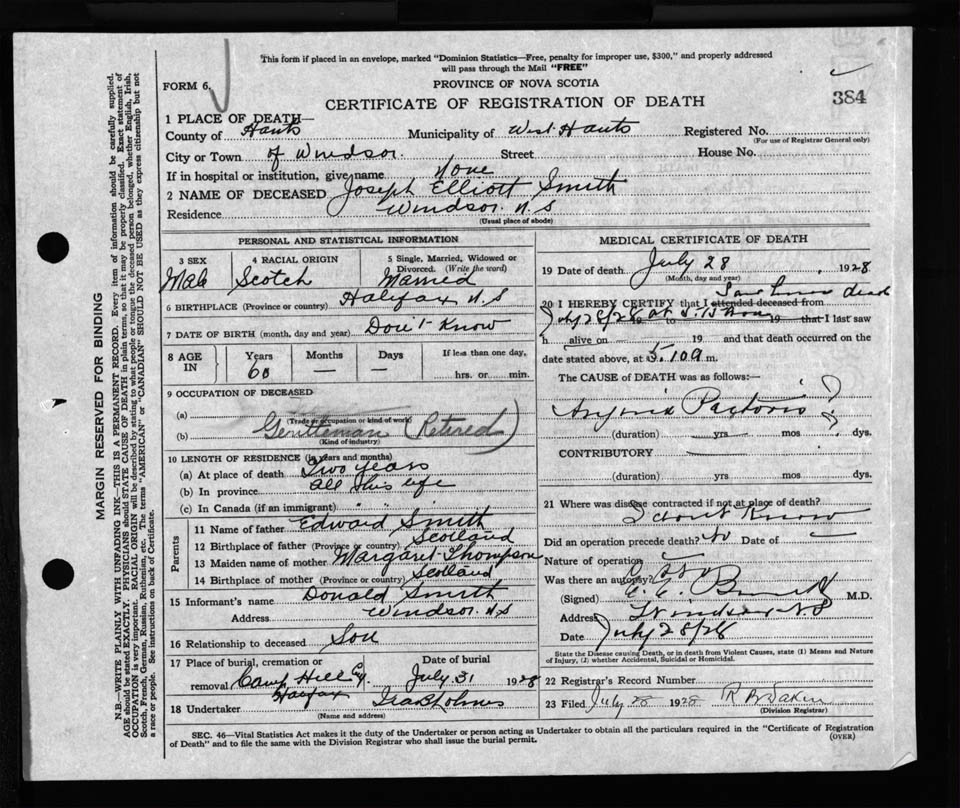 This form if placed in an envelope, marked "Dominion Statistics—Free, penalty for improper use, $300," and properly addressed
will pass through the Mail "FREE"
FORM 6.
PROVINCE OF NOVA SCOTIA
CERTIFICATE OF REGISTRATION OF DEATH
384
1 PLACE OF DEATH—
County of Hants Municipality of West Hants Registered No.
(For use of Registrar General only)
City or Town of Windsor. Street House No.
If in hospital or institution, give name None
2 NAME OF DECEASED Joseph Elliott Smith
Residence Windsor. N.S
(Usual place of abode)
PERSONAL AND STATISTICAL INFORMATION
3 SEX 4 RACIAL ORIGIN 5 Single, Married, Widowed or
Divorced. (Write the word)
Male Scotch Married
6 BIRTHPLACE (Province or country) Halifax N.S
7 DATE OF BIRTH (month, day and year) Don't Know
8 AGE IN Years Months Days If less than one day,
60 — — hrs. or min.
9 OCCUPATION OF DECEASED
(a)
(Trade or occupation or kind of work)
(b) Gentleman (Retired)
(Kind of industry)
10 LENGTH OF RESIDENCE (in years and months)
(a) At place of death Two years
(b) In province all his life
(c) In Canada (if an immigrant) " " "
Parents
11 Name of father Edward Smith
12 Birthplace of father (Province or country) Scotland
13 Maiden name of mother Margaret Thompson
14 Birthplace of mother (Province or country) Scotland
15 Informant's name Donald Smith
Address Windsor. N.S
16 Relationship to deceased Son
17 Place of burial, cremation or Date of burial
removal Camp Hill July 31 1928
Halifax
18 Undertaker
(Name and address)
MEDICAL CERTIFICATE OF DEATH
19 Date of death July 28, 1928
(Month, day and year)
dead
20 I HEREBY CERTIFY that I attended deceased from
July 28/28 at 19 to 19 that I last saw
h alive on 19 and that death occurred on the
date stated above, at 5.10 a m.
The CAUSE of DEATH was as follows:—
Angina Pectoris ?
(duration) yrs mos dys.
CONTRIBUTORY
(duration) yrs. mos. dys.
21 Where was disease contracted if not at place of death?
I don't Know
Did an operation precede death? No Date of
Nature of operation
Was there an autopsy?
(Signed) M.D.
Address Windsor NS
Date July 28/28
State the Disease causing Death, or in death from Violent Causes, state (1) Means and Nature
of Injury, (2) whether Accidental, Suicidal or Homicidal.
22 Registrar's Record Number
23 Filed July 28 1928
(Division Registrar)
SEC. 46—Vital Statistics Act makes it the duty of the Undertaker or person acting as Undertaker to obtain all the particulars required in the "Certificate of Registration
of Death" and to file the same with the Division Registrar who shall issue the burial permit.
(OVER)
MARGIN RESERVED FOR BINDING
N.B.—WRITE PLAINLY WITH UNFADING INK—THIS IS A PERMANENT RECORD. Every item of information should be carefully supplied.
AGE should be stated EXACTLY. PHYSICIANS should STATE CAUSE OF DEATH in plain terms, so that it may be properly classified. Exact statement of
OCCUPATION is very important. RACIAL ORIGIN will be described by stating to what people or tongue the deceased person belonged, whether English, Irish,
Scotch, French, German, Russian, Ruthenian, etc. The terms "AMERICAN" or "CANADIAN" SHOULD NOT BE USED as they express citizenship but not
a race or people. See instructions on back of Certificate.